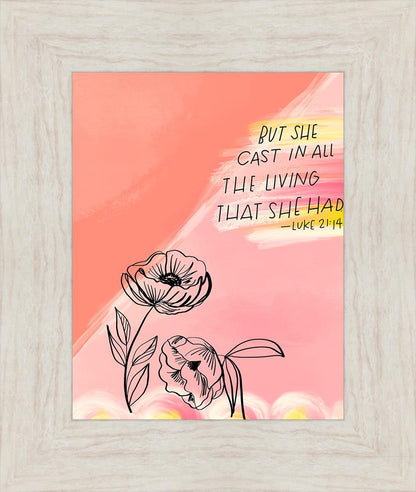 BUT SHE
CAST IN ALL
THE LIVING
THAT SHE HAD
—LUKE 21:14